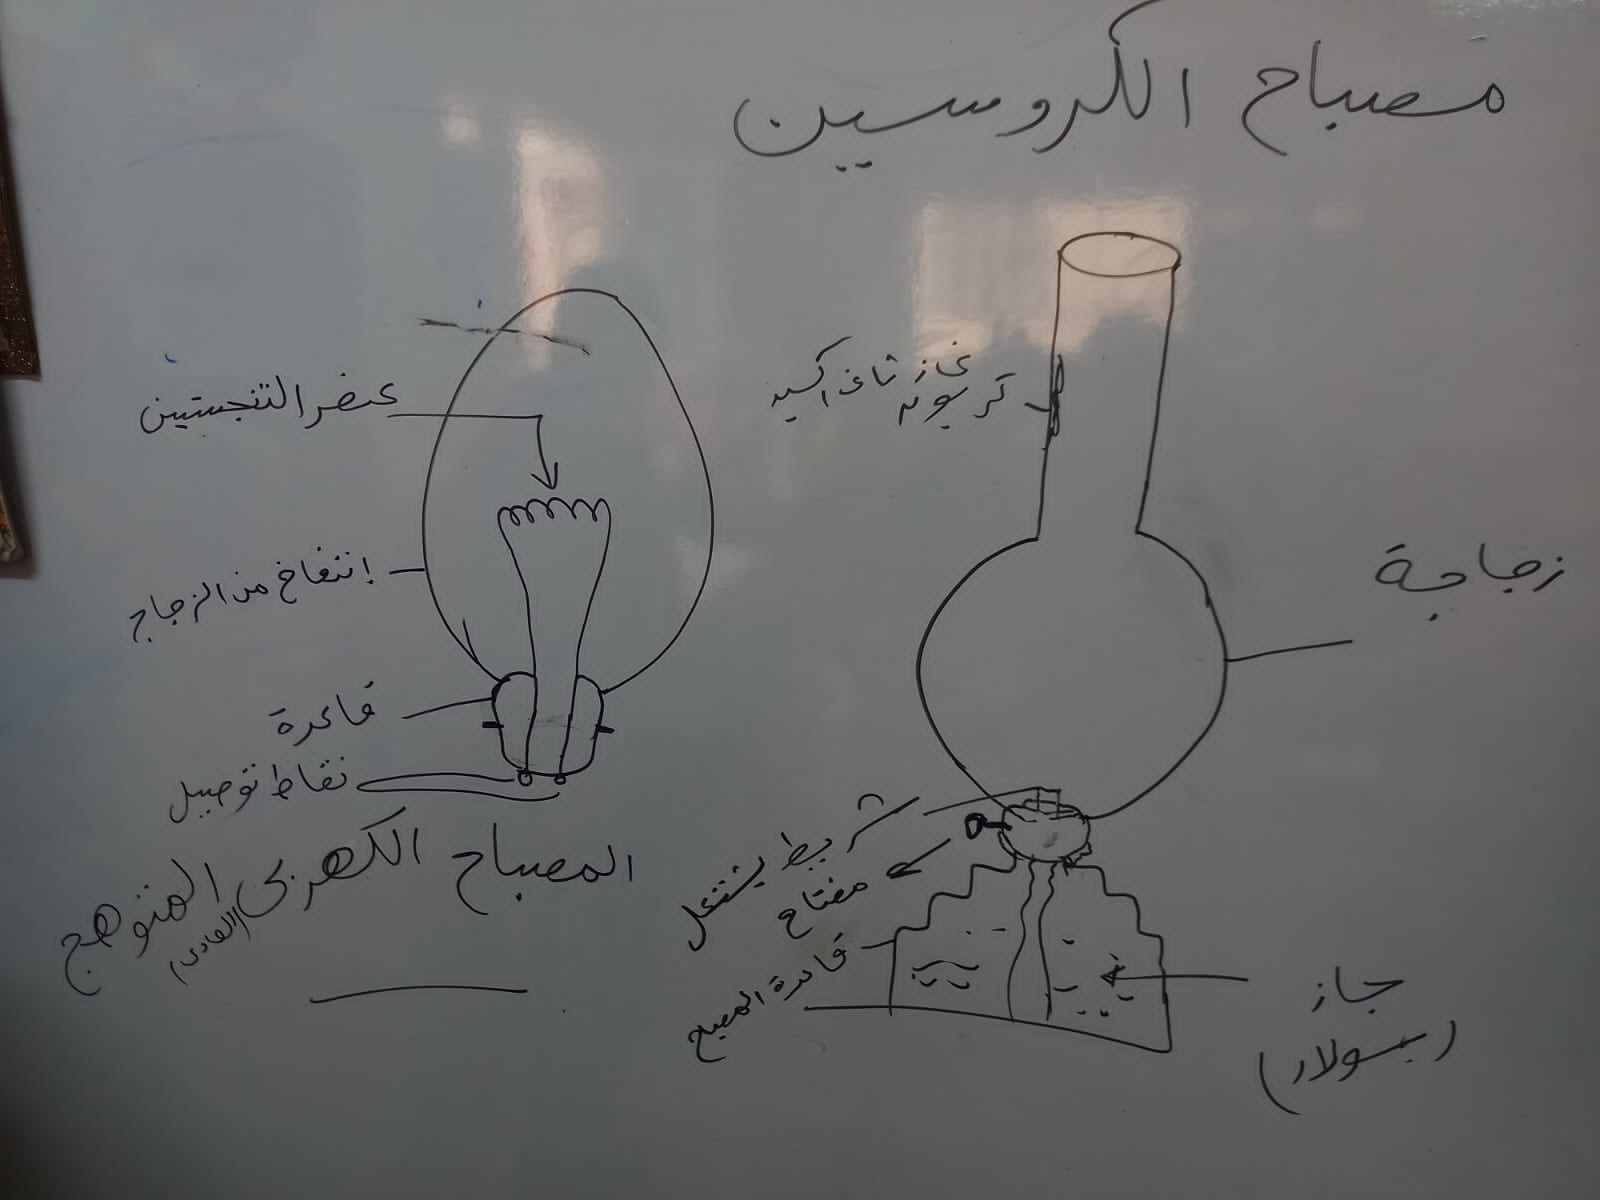 مصباح الكروسين
غاز ثاني اكسيد
كربون
زجاجة
شريط يشتعل
مفتاح
قاعدة المصباح
جاز
(سولار)
عنصر التنجستين
إنتفاخ من الزجاج
قاعدة
نقاط توصيل
المصباح الكهربى المتوهج
(العادى)